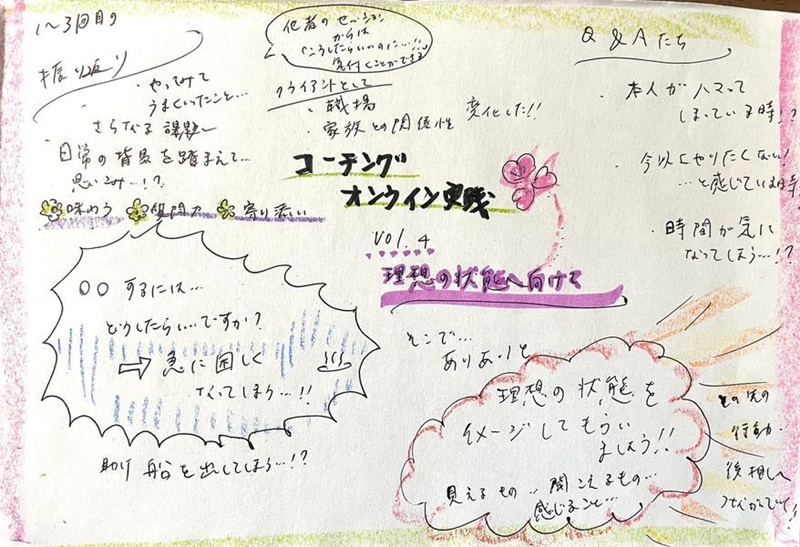 1〜3回目の
振り返り
・やってみて
うまくいったこと…
さらなる課題
日常の背景を踏まえて…
思い込み…!?
味わう 質問力 寄り添い
他者のセッション
からは
「こうしたらいいのに…!!
気付くことができる
クライアントとして
・職場
・家族との関係性
変化した!!
コーチング
オンライン実践
Vol. 4
理想の状態へ向けて
Q & Aたち
・本人がハマって
しまっている時!?
・今以上にやりたくない!
…と感じている時
・時間が気に
なってしまう…!?
○○するには…
どうしたらい…ですか?
⇨ 急に固しく
なってしまう…!!
助け船を出してしまう…!?
そこで…
ありありと
理想の状態を
イメージしてもらい
ましょう!!
見えるもの… 聞こえるもの…
感じること…
その先の
行動力
後押しへ